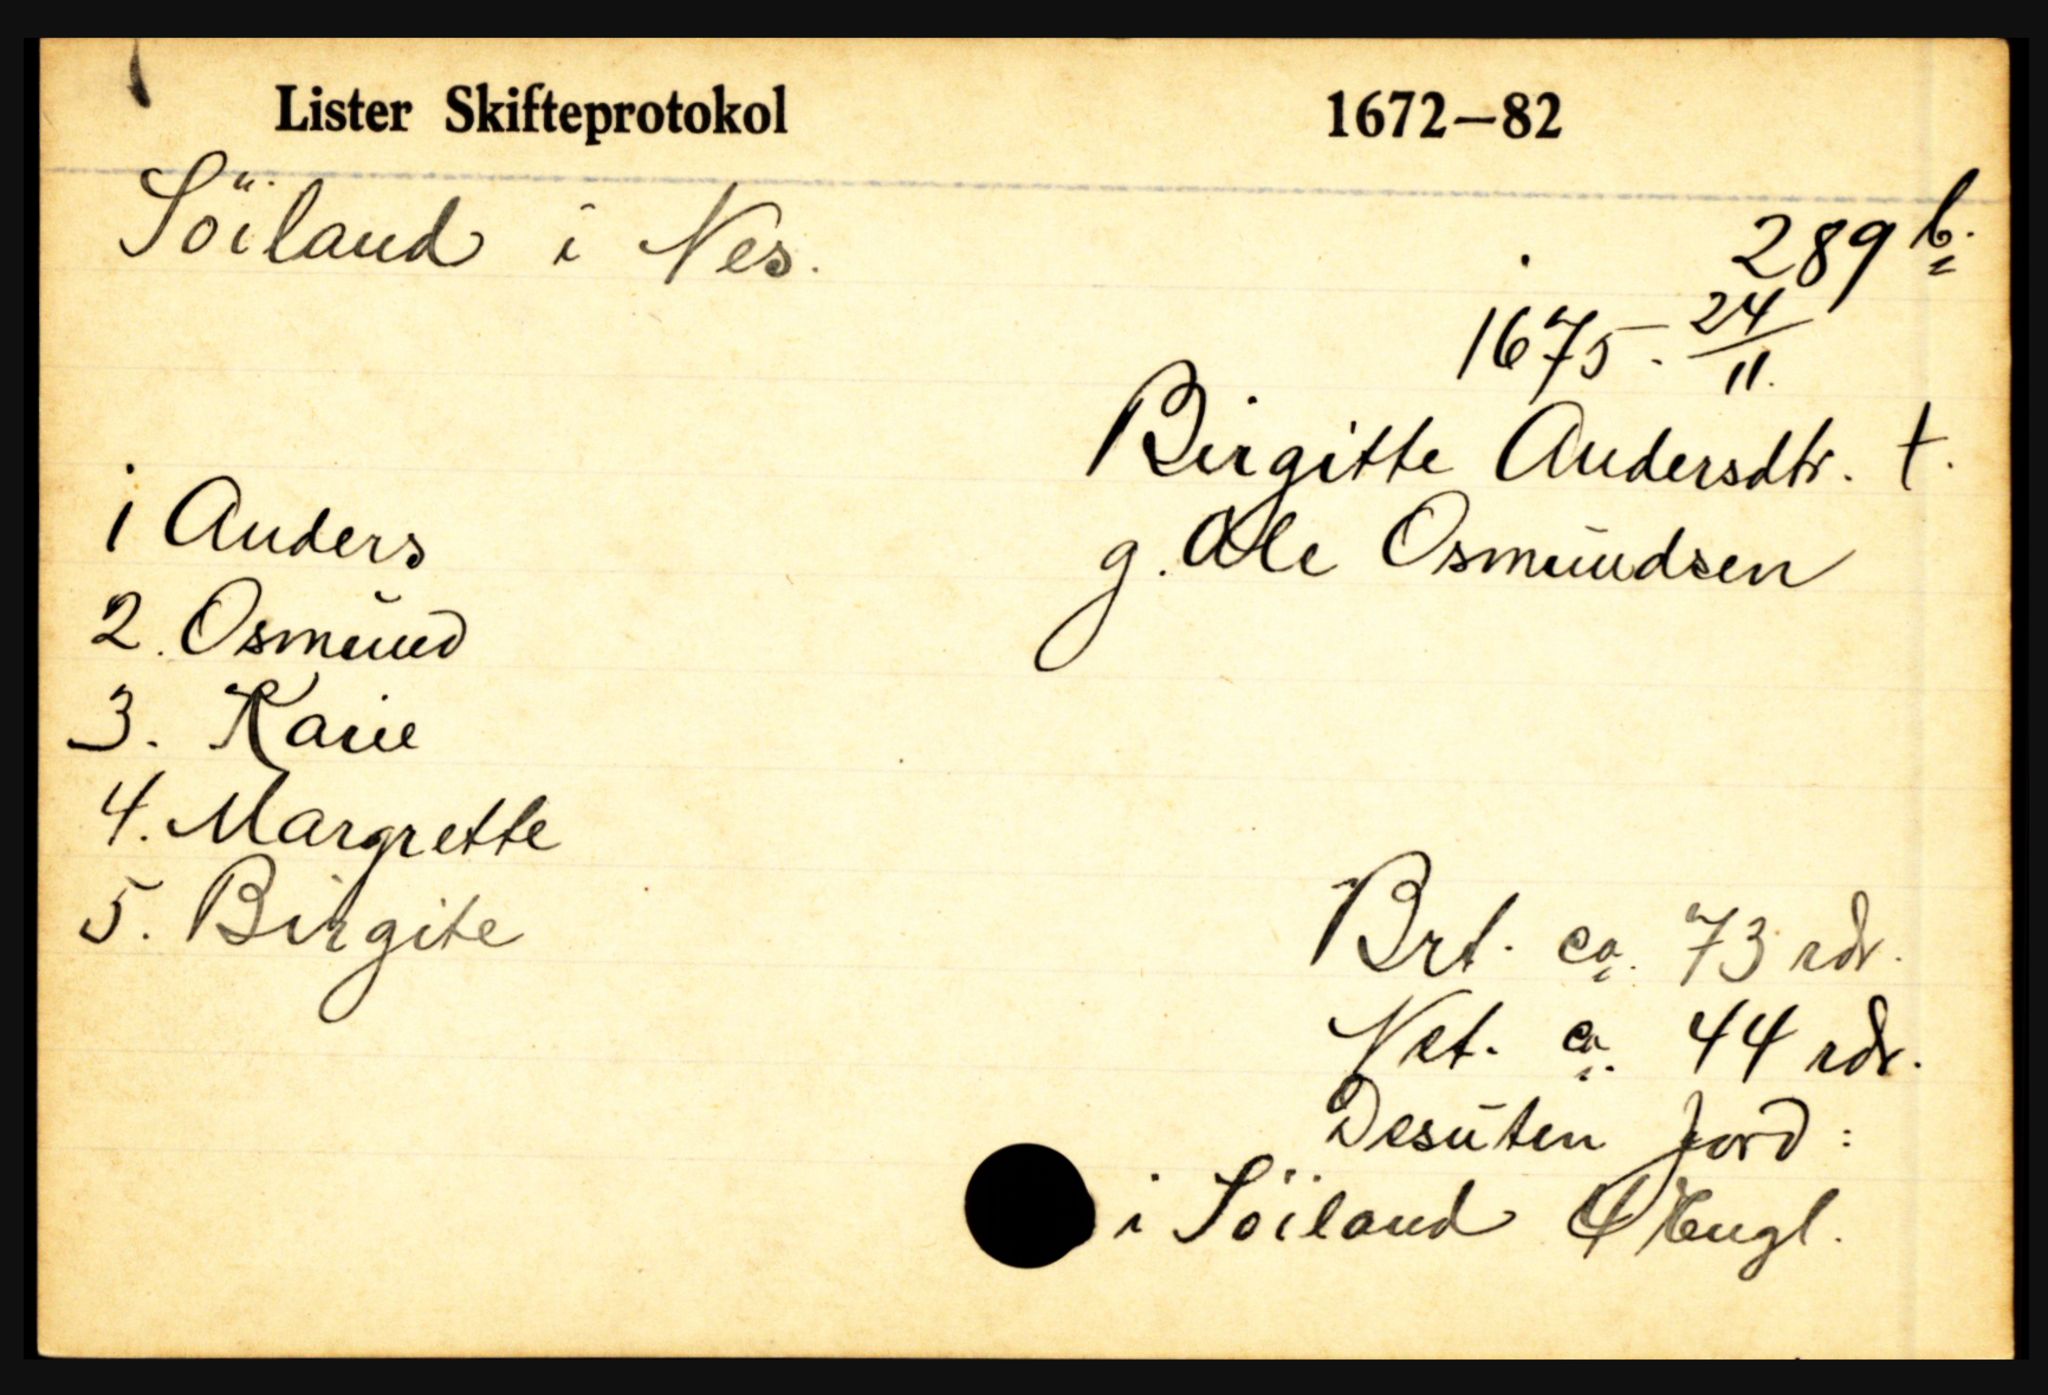 Lister Skifteprotokol 1672–82
Söiland i Nes.
289 b.
1675. 24/11.
Birgitte Andersdtr. †.
g. Ole Osmundsen
1 Anders
2. Osmund
3. Karie
4. Margrette
5. Birgite
Brt. ca. 73 rdr.
Net. ca. 44 rdr.
Desuten jord:
i Söiland 4 Engl.